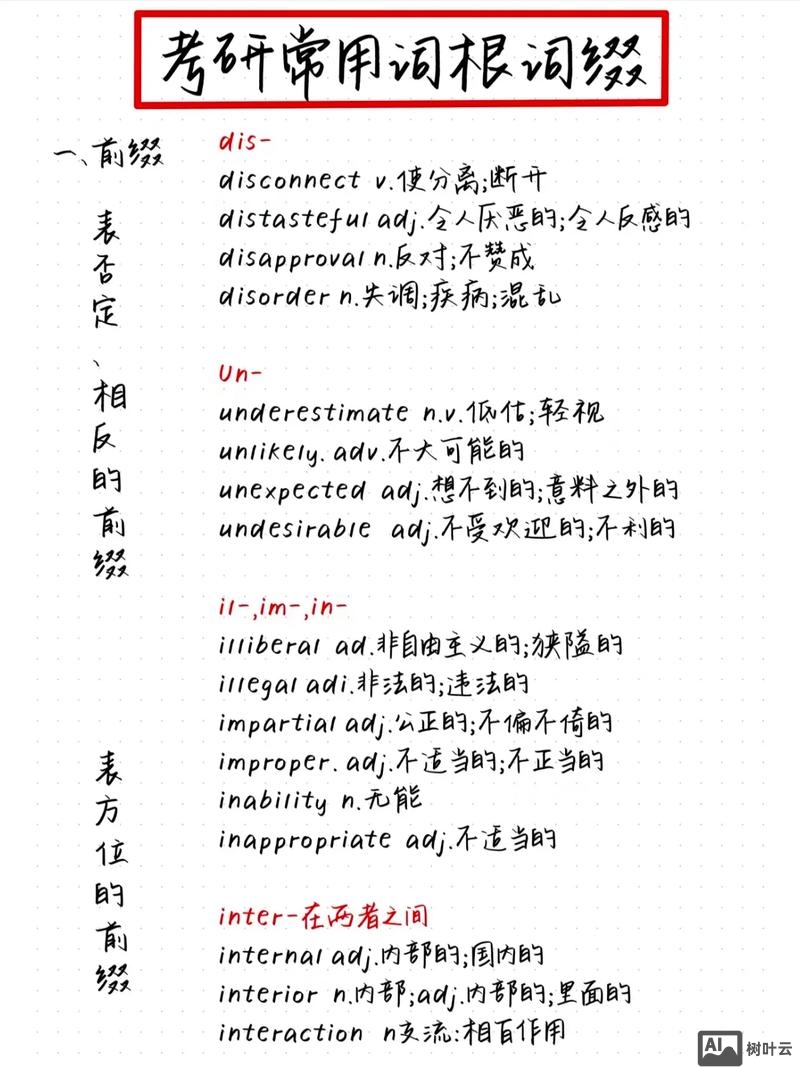 考研常用词根词缀
一、前缀
表否定、相反的前缀
dis-
disconnect v.使分离;断开
distasteful adj.令人厌恶的;令人反感的
disapproval n.反对;不赞成
disorder n.失调;疾病;混乱
un-
underestimate n.v.低估;轻视
unlikely. adv.不大可能的
unexpected adj.想不到的;意料之外的
undesirable adj.不受欢迎的;不利的
il-,im-,in-
illiberal ad.非自由主义的;狭隘的
illegal adi.非法的;违法的
impartial adj.公正的;不偏不倚的
improper. adj.不适当的;不正当的
inability n.无能
inappropriate adj.不适当的
表方位的前缀
inter-在两者之间
internal adj.内部的;国内的
interior n.内部;adj.内部的;里面的
interaction n交流:相互作用
AI 树叶云